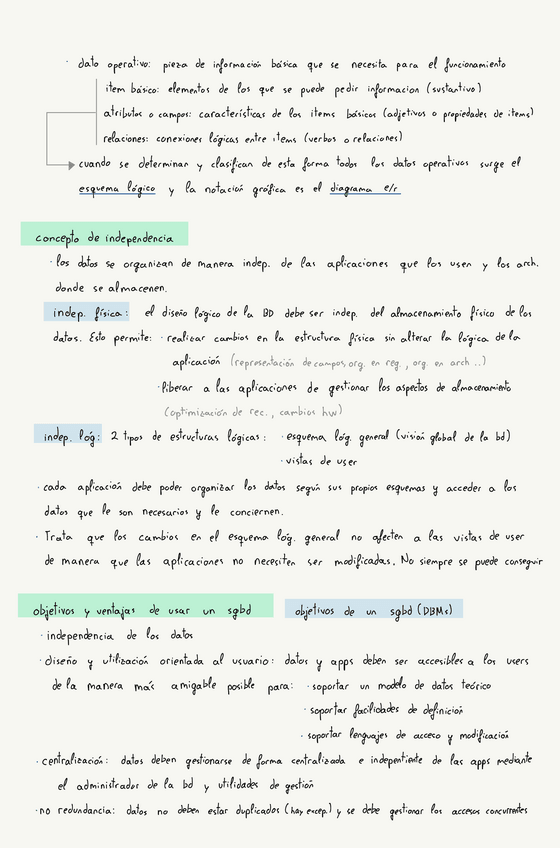 · dato operativo: pieza de información básica que se necesita para el funcionamiento
item básico: elementos de los que se puede pedir informacion (sustantivo)
atributos o campos: características de los items básicos (adjetivos o propiedades de items)
relaciones: conexiones lógicas entre items (verbos o relaciones)
cuando se determinan y clasifican de esta forma todos los datos operativos surge el
esquema lógico y la notación gráfica es el diagrama e/r
concepto de independencia
· los datos se organizan de manera indep. de las aplicaciones que los usen y los arch.
donde se almacenen.
indep. física: el diseño lógico de la BD debe ser indep. del almacenamiento físico de los
datos. Esto permite: · realizar cambios en la estructura física sin alterar la lógica de la
aplicación (representación de campos, org. en reg., org. en arch..)
· liberar a las aplicaciones de gestionar los aspectos de almacenamiento
(optimización de rec., cambios hw)
indep. lóg: 2 tipos de estructuras lógicas: · esquema lóg. general (visión global de la bd)
· vistas de user
· cada aplicación debe poder organizar los datos según sus propios esquemas y acceder a los
datos que le son necesarios y le conciernen.
· Trata que los cambios en el esquema lóg. general no afecten a las vistas de user
de manera que las aplicaciones no necesiten ser modificadas. No siempre se puede conseguir
objetivos y ventajas de usar un sgbd objetivos de un sgbd (DBMs)
· independencia de los datos
· diseño y utilización orientada al usuario: datos y apps deben ser accesibles a los users
de la manera más amigable posible para: · soportar un modelo de datos teórico
· soportar facilidades de definición
· soportar lenguajes de acceso y modificación
· centralización: datos deben gestionarse de forma centralizada e independiente de las apps mediante
el administrador de la bd y utilidades de gestión
· no redundancia: datos no deben estar duplicados (hay excep.) y se debe gestionar los accesos concurrentes